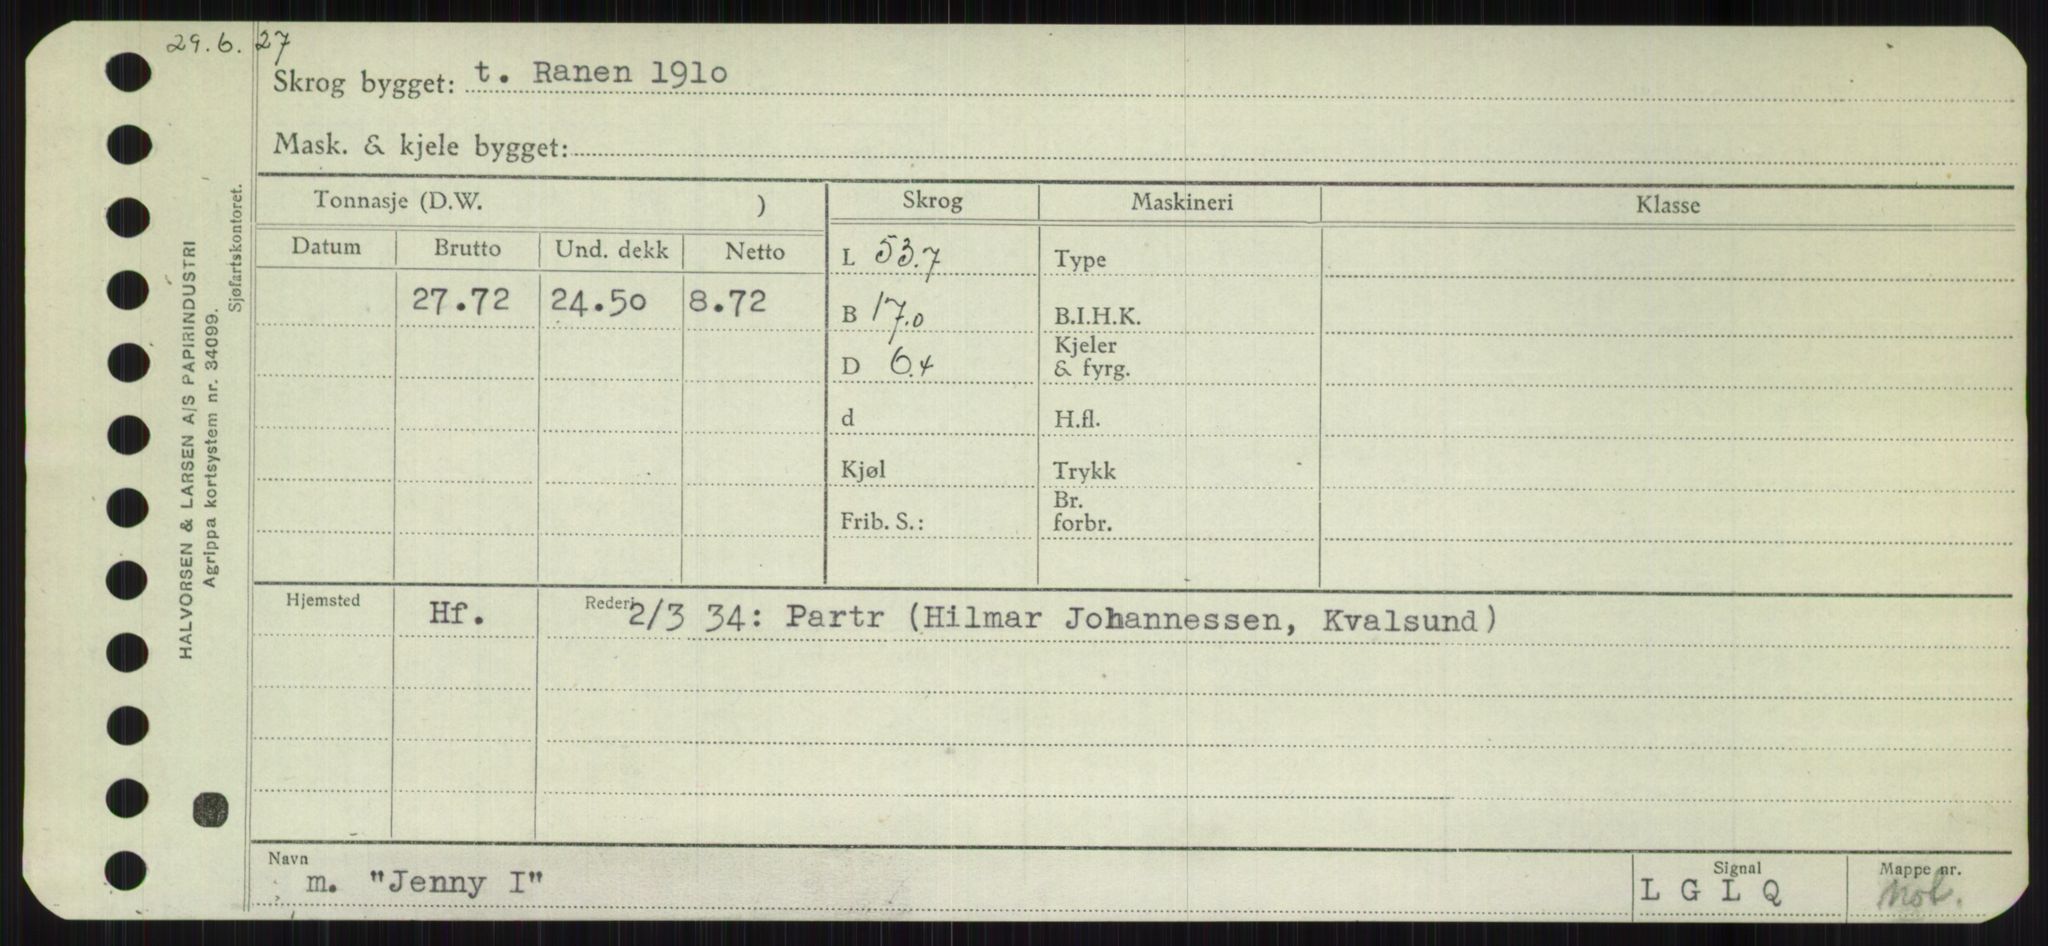 29.6.27
Skrog bygget: t. Ranen 1910
Mask. & kjele bygget:
Tonnasje (D.W. )
Skrog Maskineri Klasse
Datum Brutto Und. dekk Netto
27.72 24.50 8.72
L 53.7 Type
B 17.0 B.I.H.K.
D 6.4 Kjeler & fyrg.
d H.fl.
Kjøl Trykk
Frib. S.: Br. forbr.
Hjemsted Hf. Rederi 2/3 34: Partr (Hilmar Johannessen, Kvalsund)
Navn Signal Mappe nr.
m. "Jenny I" L G L Q
HALVORSEN & LARSEN A/S PAPIRINDUSTRI
Agrippa kortsystem nr. 34099.
Sjøfartskontoret.